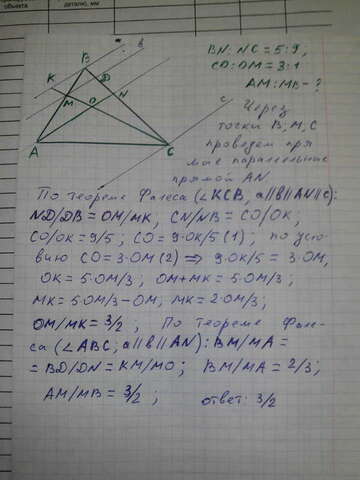 объекта
деталю, мм
BN:NC = 5:9,
CO:OM = 3:1
AM:MB - ?
Через
точки B, M, C
проведем пря
мые параллельные
прямой AN
a
b
c
B
K
D
M
O
N
A
C
По теореме Фалеса (∠KCB, a||b||AN||c):
ND/DB = OM/MK, CN/NB = CO/OK,
CO/OK = 9/5; CO = 9·OK/5 (1); по усло-
вию CO = 3·OM (2) ⇒ 9·OK/5 = 3·OM,
OK = 5·OM/3; OM+MK = 5·OM/3;
MK = 5·OM/3 - OM, MK = 2·OM/3;
OM/MK = 3/2; По теореме Фале-
са (∠ABC, a||b||AN): BM/MA =
= BD/DN = KM/MO; BM/MA = 2/3;
AM/MB = 3/2; ответ: 3/2